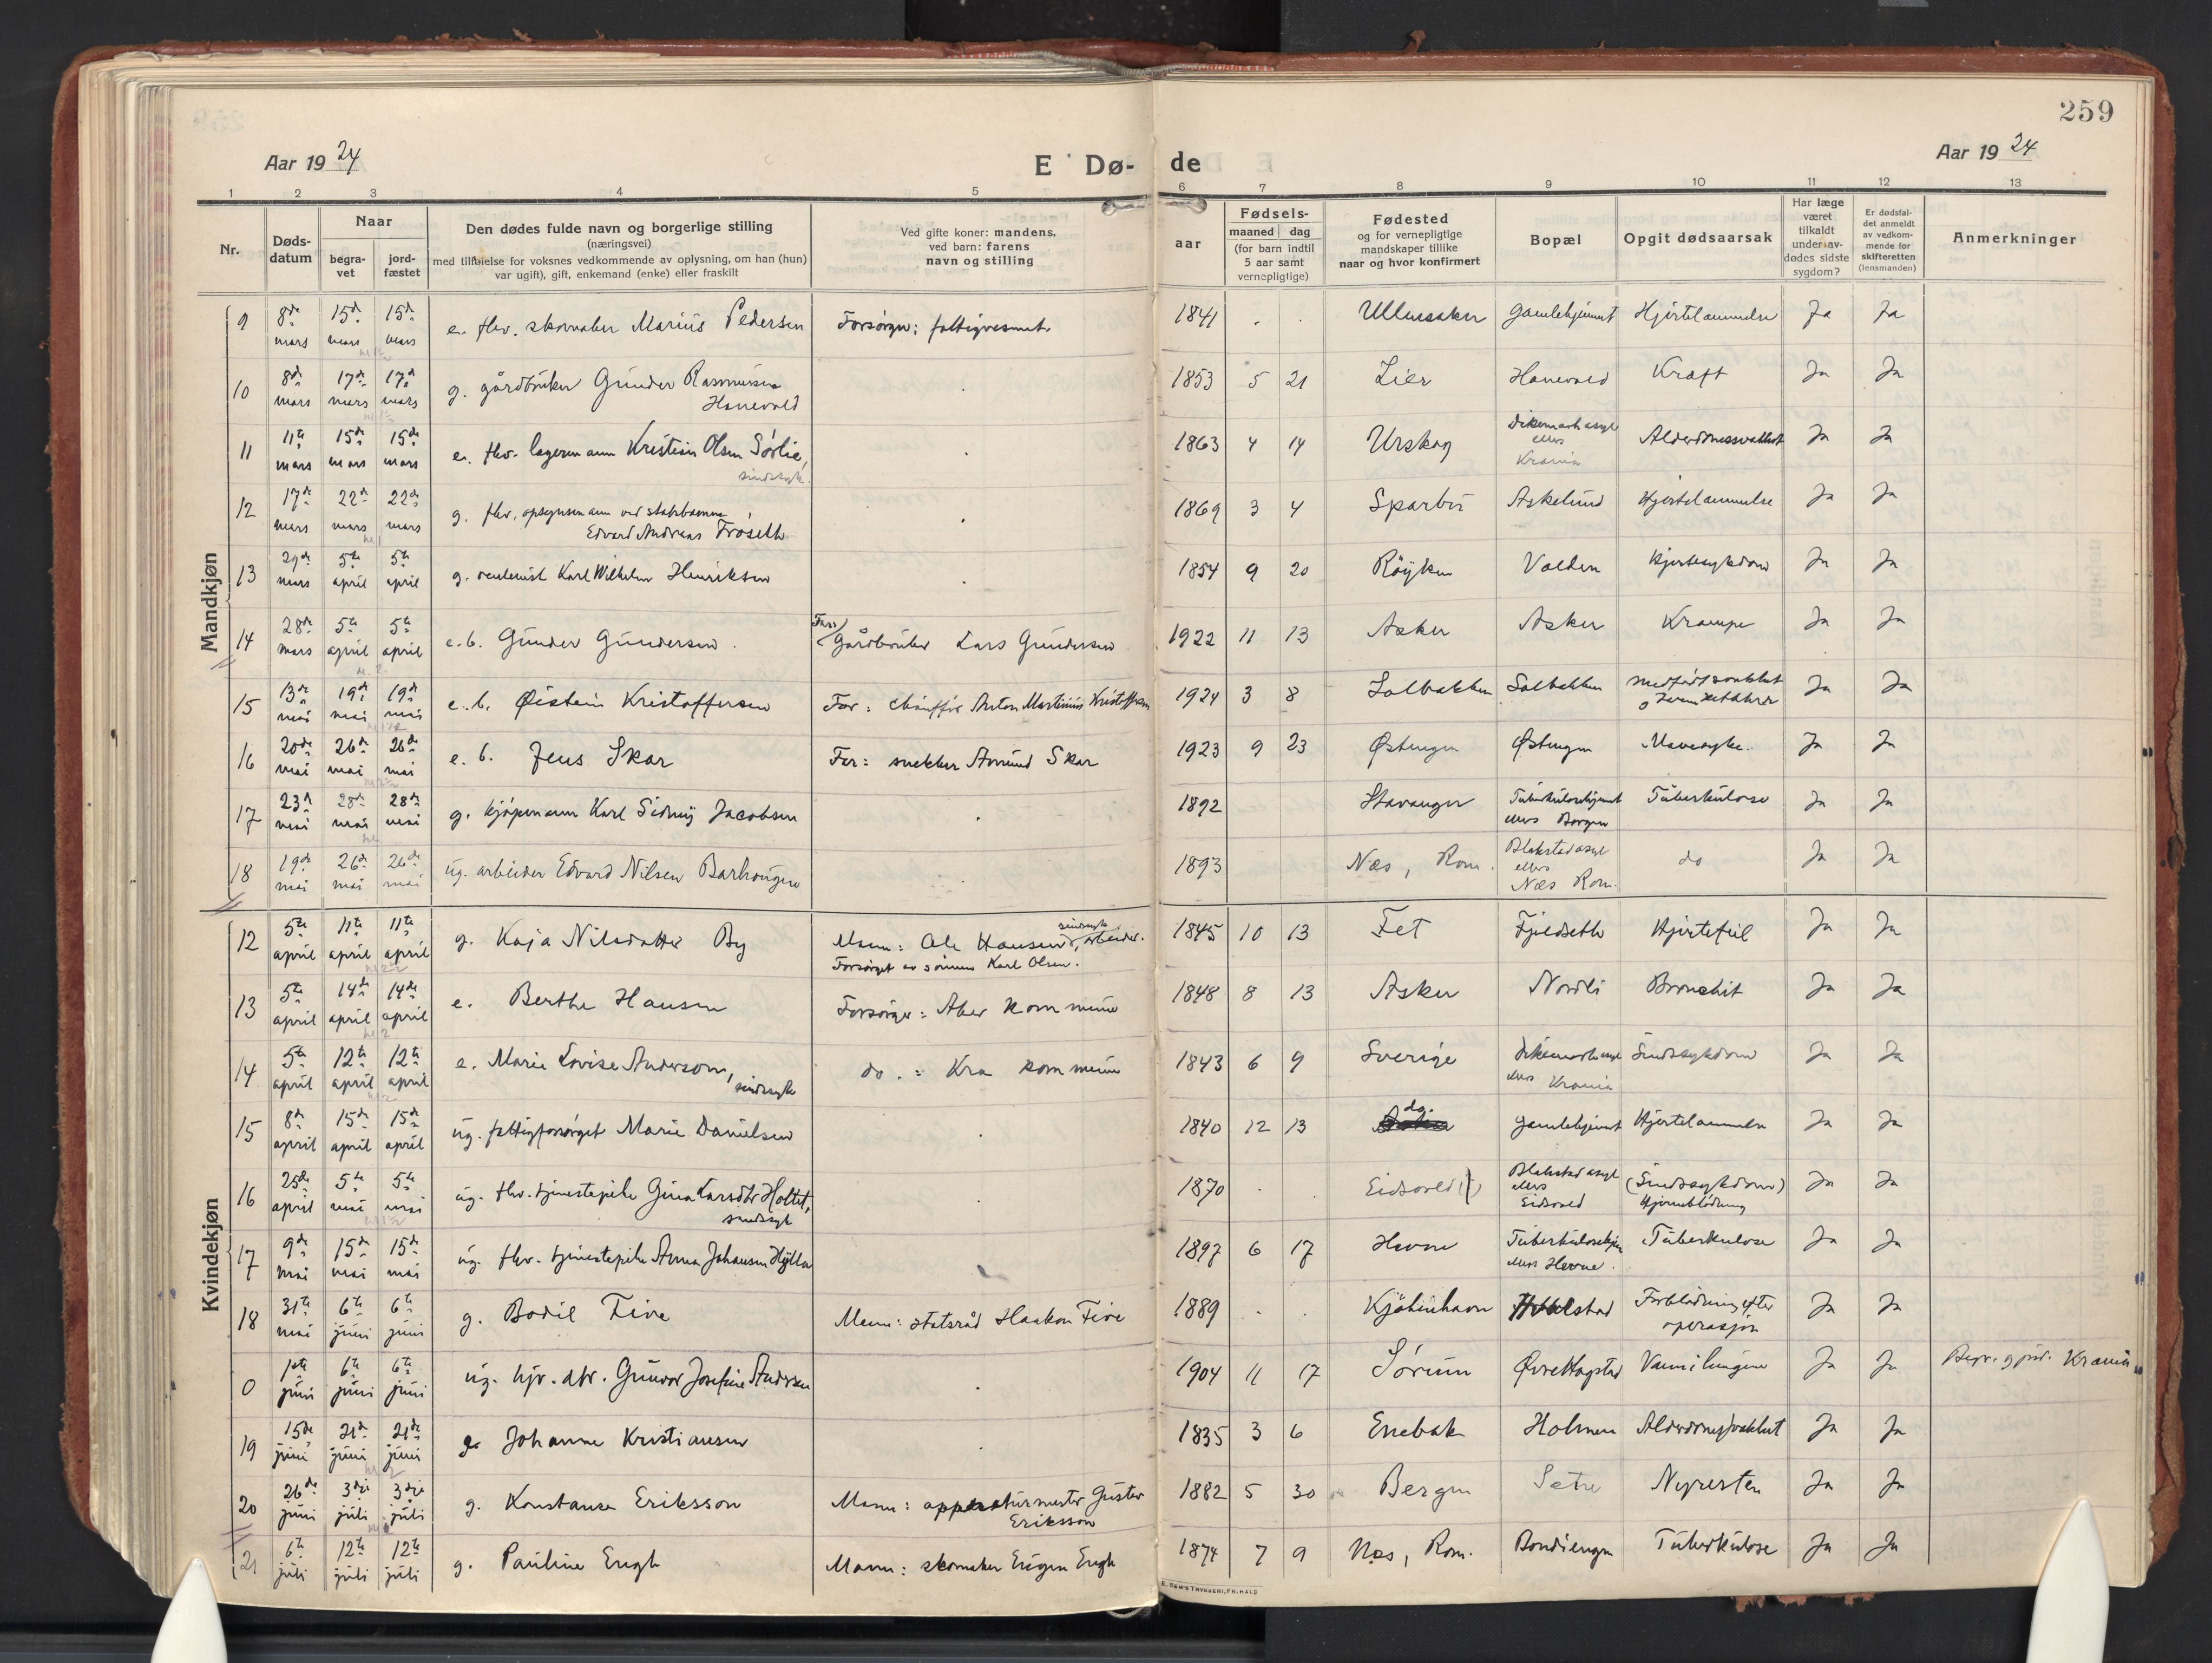 259
Aar 1924
E Dø-de
Aar 1924
1 2 3 4 5 6 7 8 9 10 11 12 13
Nr.
Døds-datum
Naar
begra-vet
jord-fæstet
Den dødes fulde navn og borgerlige stilling
(næringsvei)
med tilføielse for voksnes vedkommende av oplysning, om han (hun)
var ugift), gift, enkemand (enke) eller fraskilt
Ved gifte koner: mandens,
ved barn: farens
navn og stilling
Fødsels-
aar
maaned dag
(for barn indtil
5 aar samt
vernepligtige)
Fødested
og for vernepligtige
mandskaper tillike
naar og hvor konfirmert
Bopæl
Opgit dødsaarsak
Har læge
været
tilkaldt
under av-
dødes sidste
sygdom?
Er dødsfal-
det anmeldt
av vedkom-
mende for
skifteretten
(lensmanden)
Anmerkninger
Mandkjøn
9 8de mars 15de mars 15de mars e. fhv. skomaker Marius Pedersen Forsørger: fattigvesenet 1841 Ullensaker Gamlehjemmet Hjertelammelse Ja Ja
10 8de mars 17de mars 17de mars g. gårdbruker Gunder Rasmussen Hanevold 1853 5 21 Lier Hanevold Kræft Ja Ja
11 11te mars 15de mars 15de mars e. fhv. lagermann Kristian Olsen Sørlie, sindssyk. 1863 4 14 Urskog Dikemark asyl ellers Krania Alderdomssvakhet Ja Ja
12 17de mars 22de mars 22de mars g. fhv. opsynsmann ved statsbanene Edvard Andreas Frøseth 1869 3 4 Sparbu Askelund Hjertelammelse Ja Ja
13 29de mars 5te april 5te april g. rentenist Karl Wilhelm Henriksen 1854 9 20 Røyken Valden Hjertesykdom Ja Ja
14 28de mars 5te april 5te april e.b. Gunder Gundersen. Far: Gårdbruker Lars Gundersen 1922 11 13 Asker Asker Krampe Ja Ja
15 13de mai 19de mai 19de mai e.b. Øistein Kristoffersen Far: chauffør Anton Martinius Kristoffersen 1924 3 8 Solbakken Solbakken medfødt svakhet Ja Ja
16 20de mai 26de mai 26de mai e.b. Jens Skar Far: snekker Amund Skar 1923 9 23 Østengen Østengen Mavesyke Ja Ja
17 23de mai 28de mai 28de mai g. kjøpmann Karl Sidney Jacobsen 1892 Stavanger Tuberkulosehjemmet ellers Borgen Tuberkulose Ja Ja
18 19de mai 26de mai 26de mai ug. arbeider Edvard Nilsen Barhaugen 1893 Næs, Rom. Blakstad asyl ellers Næs Rom. do Ja Ja
Kvindekjøn
12 5te april 11te april 11te april g. Kaja Nilsdatter By Mann: Ole Hansen, sindssyk arbeider. Forsørget av sønnen Karl Olsen. 1845 10 13 Fet Fjeldseth Hjertefeil Ja Ja
13 5te april 14de april 14de april e. Berthe Hansen Forsørger: Aker kommune 1848 8 13 Asker Nordli Bronchit Ja Ja
14 5te april 12te april 12te april e. Marie Lovise Anderson, sindssyk do. : Kra kommune 1843 6 9 Sverige Dikemark asyl ellers Krania Sindssykdom Ja Ja
15 8de april 15de april 15de april ug. fattigforsørget Marie Danielsen 1840 12 13 do. Gamlehjemmet Hjertelammelse Ja Ja
16 25de april 5te mai 5te mai ug. fhv. tjenestepike Gina Larsdtr Holtet, sindssyk 1870 Eidsvold (?) Blakstad asyl ellers Eidsvold (Sindssykdom) Hjerneblødning Ja Ja
17 9de mai 15de mai 15de mai ug. fhv. tjenestepike Anna Johansen Hylla 1897 6 17 Hevne Tuberkulosehjem ellers Hevne. Tuberkulose Ja Ja
18 31te mai 6te juni 6te juni g. Bodil Five Mann: statsråd Haakon Five 1889 Kjøbenhavn Hvalstad Forblødning efter operasjon Ja Ja
0 1ste juni 6te juni 6te juni ug. hjv. dtr. Gunvor Josefine Andersen 1904 11 17 Sørum Øvre Hogstad Vann i lungene Ja Ja Begr. g jord. Krania
19 15de juni 21de juni 21de juni g. Johanne Kristiansen 1835 3 6 Enebak Holmen Alderdomssvakhet Ja Ja
20 26de juni 3die juli 3die juli g. Konstanse Eriksson Mann: apparaturmester Gustav Eriksson 1882 5 30 Bergen Setre Nyresten Ja Ja
21 6te juli 12te juli 12te juli g. Pauline Engh Mann: skomaker Eugen Engh 1874 7 9 Næs, Rom. Bondiengen Tuberkulose Ja Ja
E. SEM'S TRYKKERI, FR.HALD